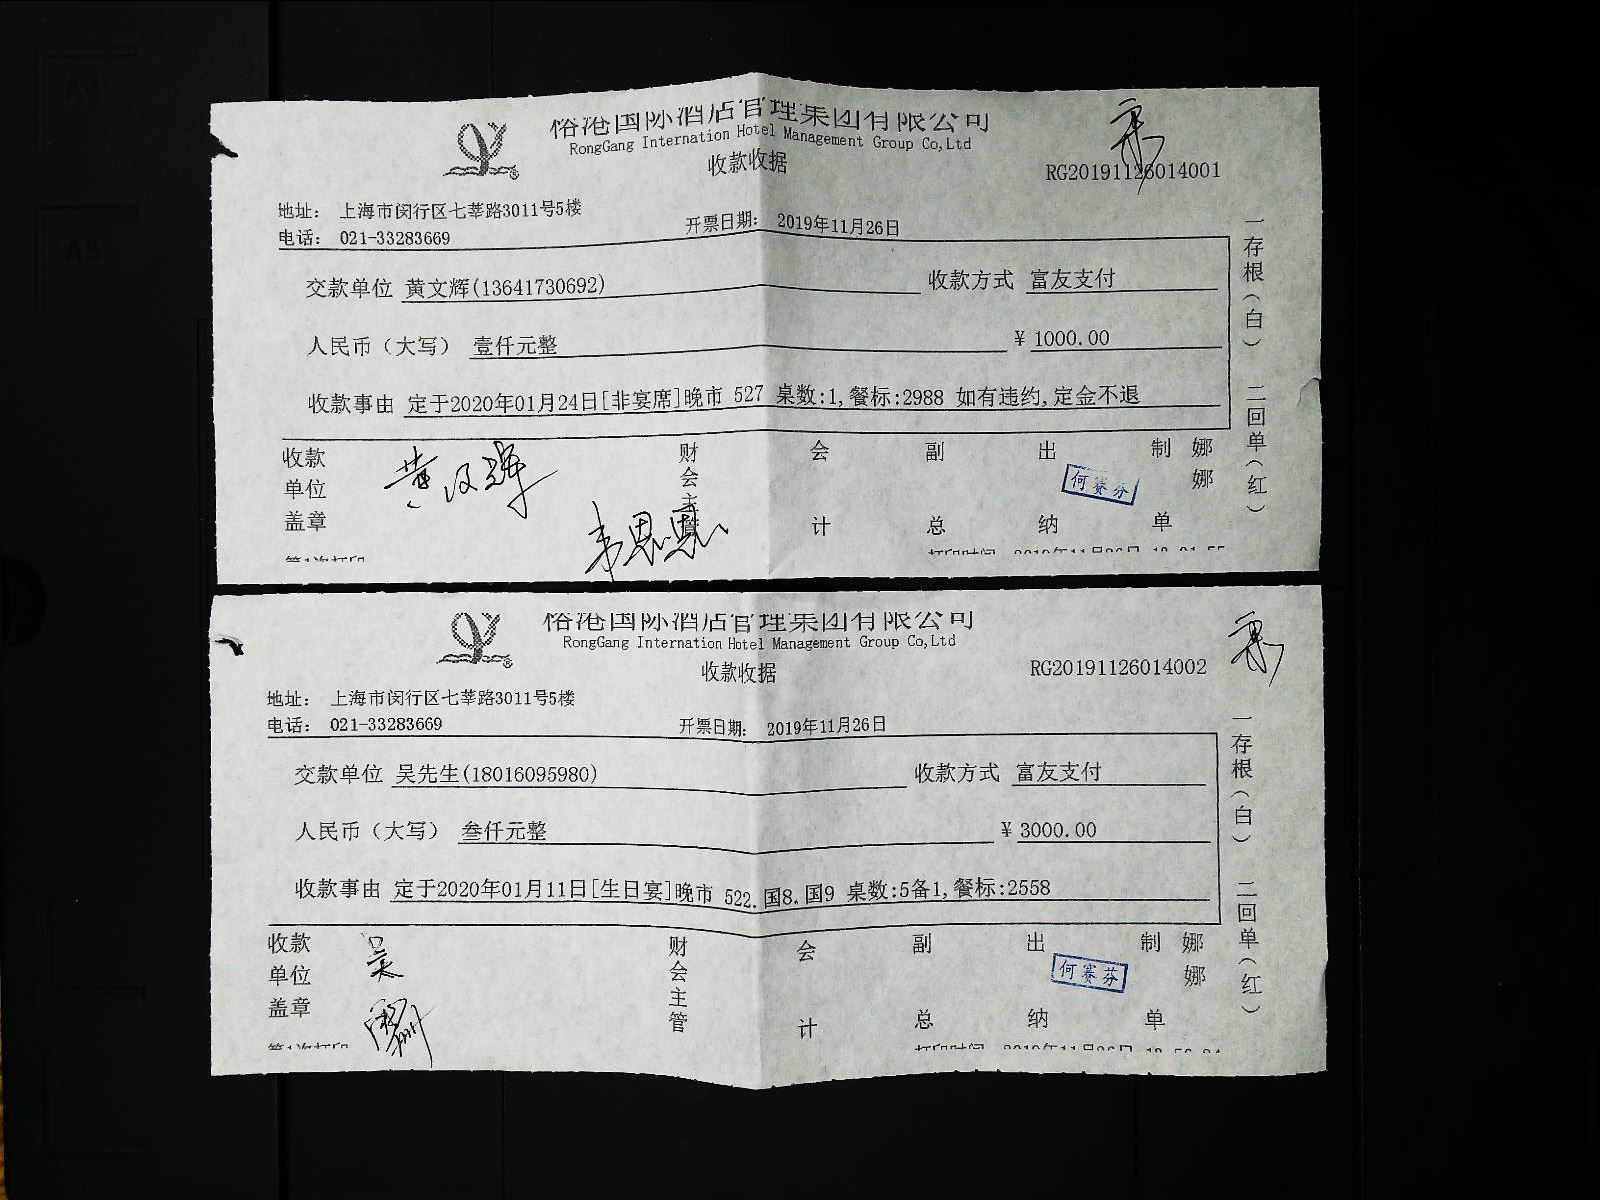 A4
A5
俗港国际酒店管理集团有限公司
RongGang Internation Hotel Management Group Co,Ltd
收款收据
RG20191126014001
地址： 上海市闵行区七莘路3011号5楼
电话： 021-33283669
开票日期： 2019年11月26日
交款单位 黄文辉(13641730692)
收款方式 富友支付
人民币（大写） 壹仟元整
¥ 1000.00
收款事由 定于2020年01月24日[非宴席]晚市 527 桌数:1,餐标:2988 如有违约,定金不退
一存根（白） 二回单（红）
收款单位盖章
黄文辉
财会主管
韦恩恩
会计
副总
出纳
何赛芬
制单
娜娜
第1次打印
打印时间 2019年11月26日
俗港国际酒店管理集团有限公司
RongGang Internation Hotel Management Group Co,Ltd
收款收据
RG20191126014002
地址： 上海市闵行区七莘路3011号5楼
电话： 021-33283669
开票日期： 2019年11月26日
交款单位 吴先生(18016095980)
收款方式 富友支付
人民币（大写） 叁仟元整
¥ 3000.00
收款事由 定于2020年01月11日[生日宴]晚市 522.国8.国9 桌数:5备1,餐标:2558
一存根（白） 二回单（红）
收款单位盖章
吴
财会主管
会计
副总
出纳
何赛芬
制单
娜娜
第1次打印
打印时间 2019年11月26日